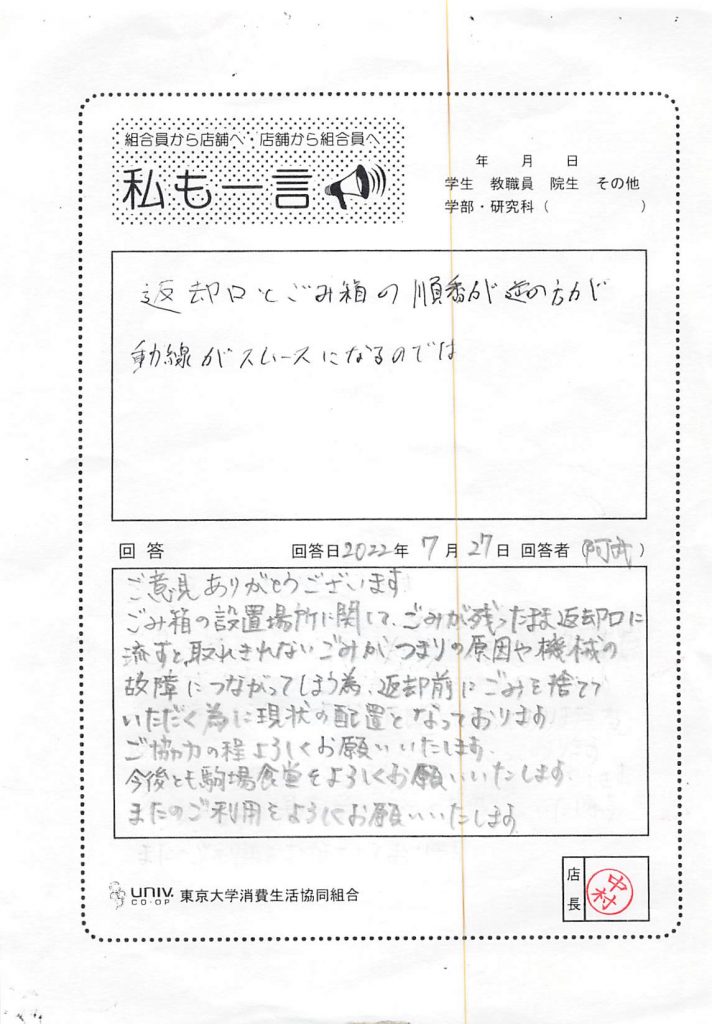 組合員から店舗へ・店舗から組合員へ
私も一言
年 月 日
学生 教職員 院生 その他
学部・研究科（ ）
返却口とごみ箱の順番が逆の方が
動線がスムースになるのでは
回答 回答日2022年 7月 27日 回答者（阿武）
ご意見ありがとうございます
ごみ箱の設置場所に関して、ごみが残ったまま返却口に
流すと、取れきれないごみが つまりの原因や機械の
故障につながってしまう為、返却前にごみを捨てて
いただく為に現状の配置となっております
ご協力の程よろしくお願いいたします.
今後とも駒場食堂をよろしくお願いいたします.
またのご利用をよろしくお願いいたします
UNIV. CO-OP 東京大学消費生活協同組合
店長
中村